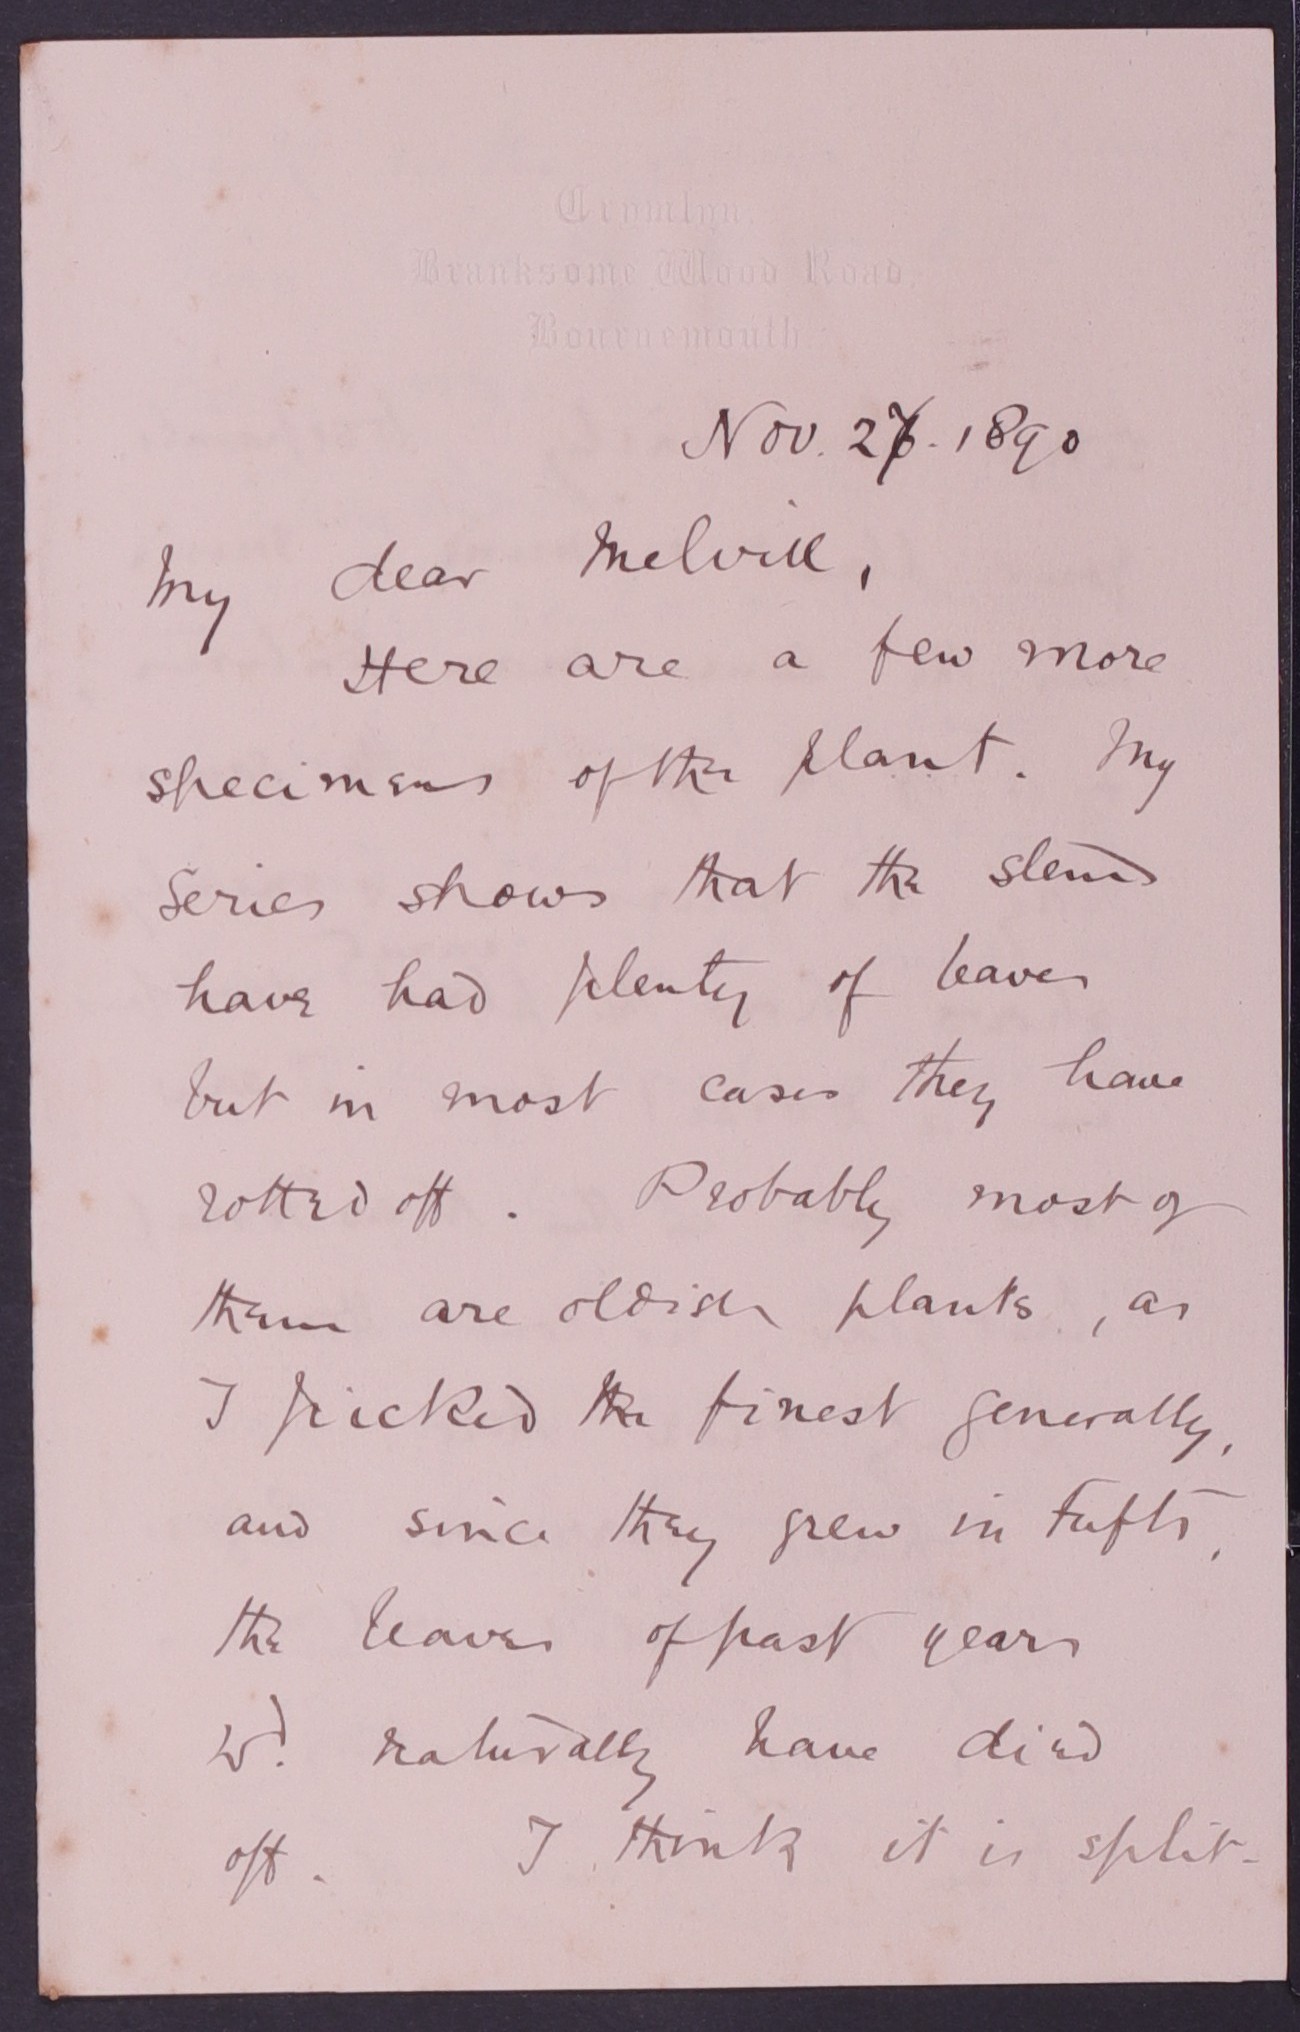 Cromlyn.
Branksome Wood Road,
Bournemouth.
Nov. 27. 1890
My dear Melvill,
Here are a few more
specimens of the plant. My
series shows that the stems
have had plenty of leaves
but in most cases they have
rotted off. Probably most of
them are oldish plants, as
I picked the finest generally,
and since they grew in tufts,
the leaves of past years
wd. naturally have died
off. I think it is split-